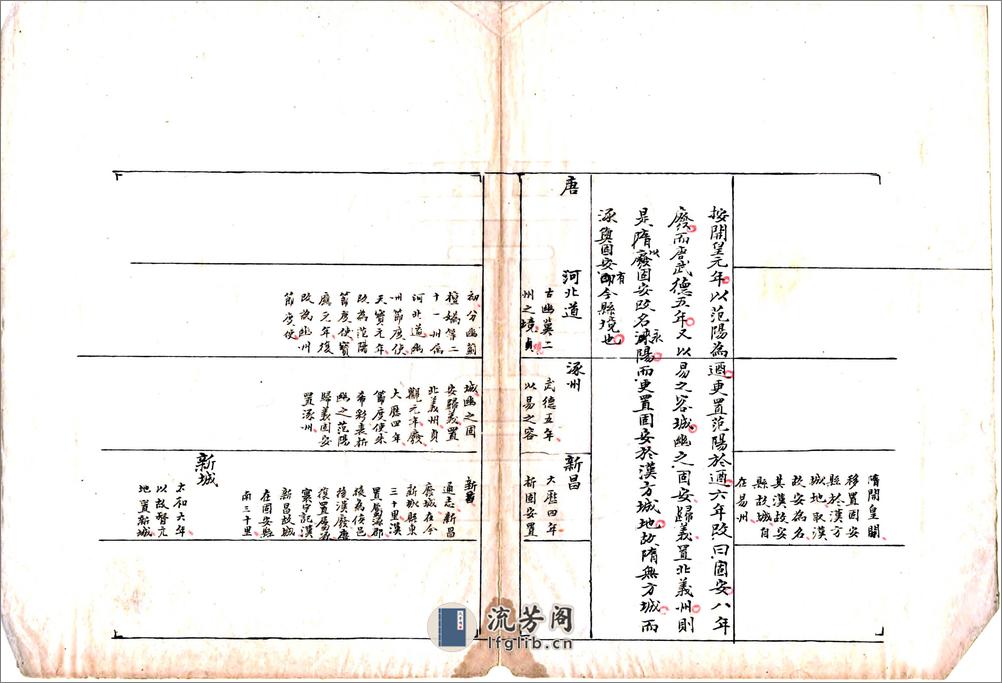 隋開皇間
移置固安
縣於漢方
城地取漢
故安為名
其漢故安
縣故城自
在易州
按開皇元年以范陽為遒更置范陽於遒六年改曰固安八年
廢而唐武德五年又以易之容城幽之固安歸義置北義州則
是隋以廢固安改名永陽而更置固安於漢方城地故隋無方城而
涿與固安有今縣境也
唐
河北道
古幽冀二
州之境貞
初分幽薊
檀媯等二
十一州為
河北道幽
州節度使
天寶元年
改為范陽
節度使寶
應元年復
改為幽州
節度使
涿州
武德五年
以易之容
城幽之固
安歸義置
北義州貞
觀元年廢
大歷四年
節度使朱
希彩奏析
幽之范陽
歸義固安
置涿州
新昌
大歷四年
析固安置
新昌
通志新昌
廢城在今
新城縣東
三十里漢
置屬涿郡
後為侯邑
後漢廢唐
復置屬涿
寰宇記漢
新昌故城
在固安縣
南三十里
新城
太和六年
以故督亢
地置新城
流芳阁
lfglib.com